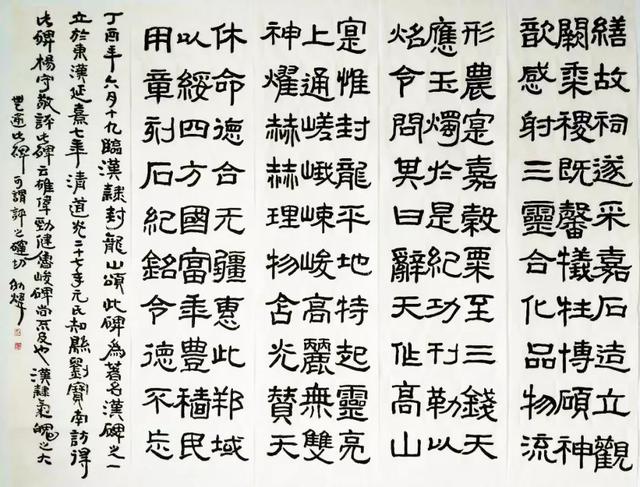 繕故祠遂采嘉石造立觀
闕黍稷既馨犧牲博碩神
歆感射三靈合化品物流
形農寔嘉穀粟至三錢天
應玉燭於是紀功刊勒以
炤令問其日辭天作高山
寔惟封龍平地特起靈亮
上通嵯峨竦峻高麗無雙
神燿赫赫理物含光贊天
休命德合无疆惠此邦域
以綏四方國富年豐穡民
用章刻石紀銘令德不忘
丁酉年六月十九臨漢隸封龍山頌此碑為著名漢碑之一
立於東漢延熹七年清道光二十七年元氏知縣劉寶南訪得
此碑楊守敬評此碑云雄偉勁健魯峻碑尚不及也漢隸氣魄之大
無逾此碑可謂評之確切